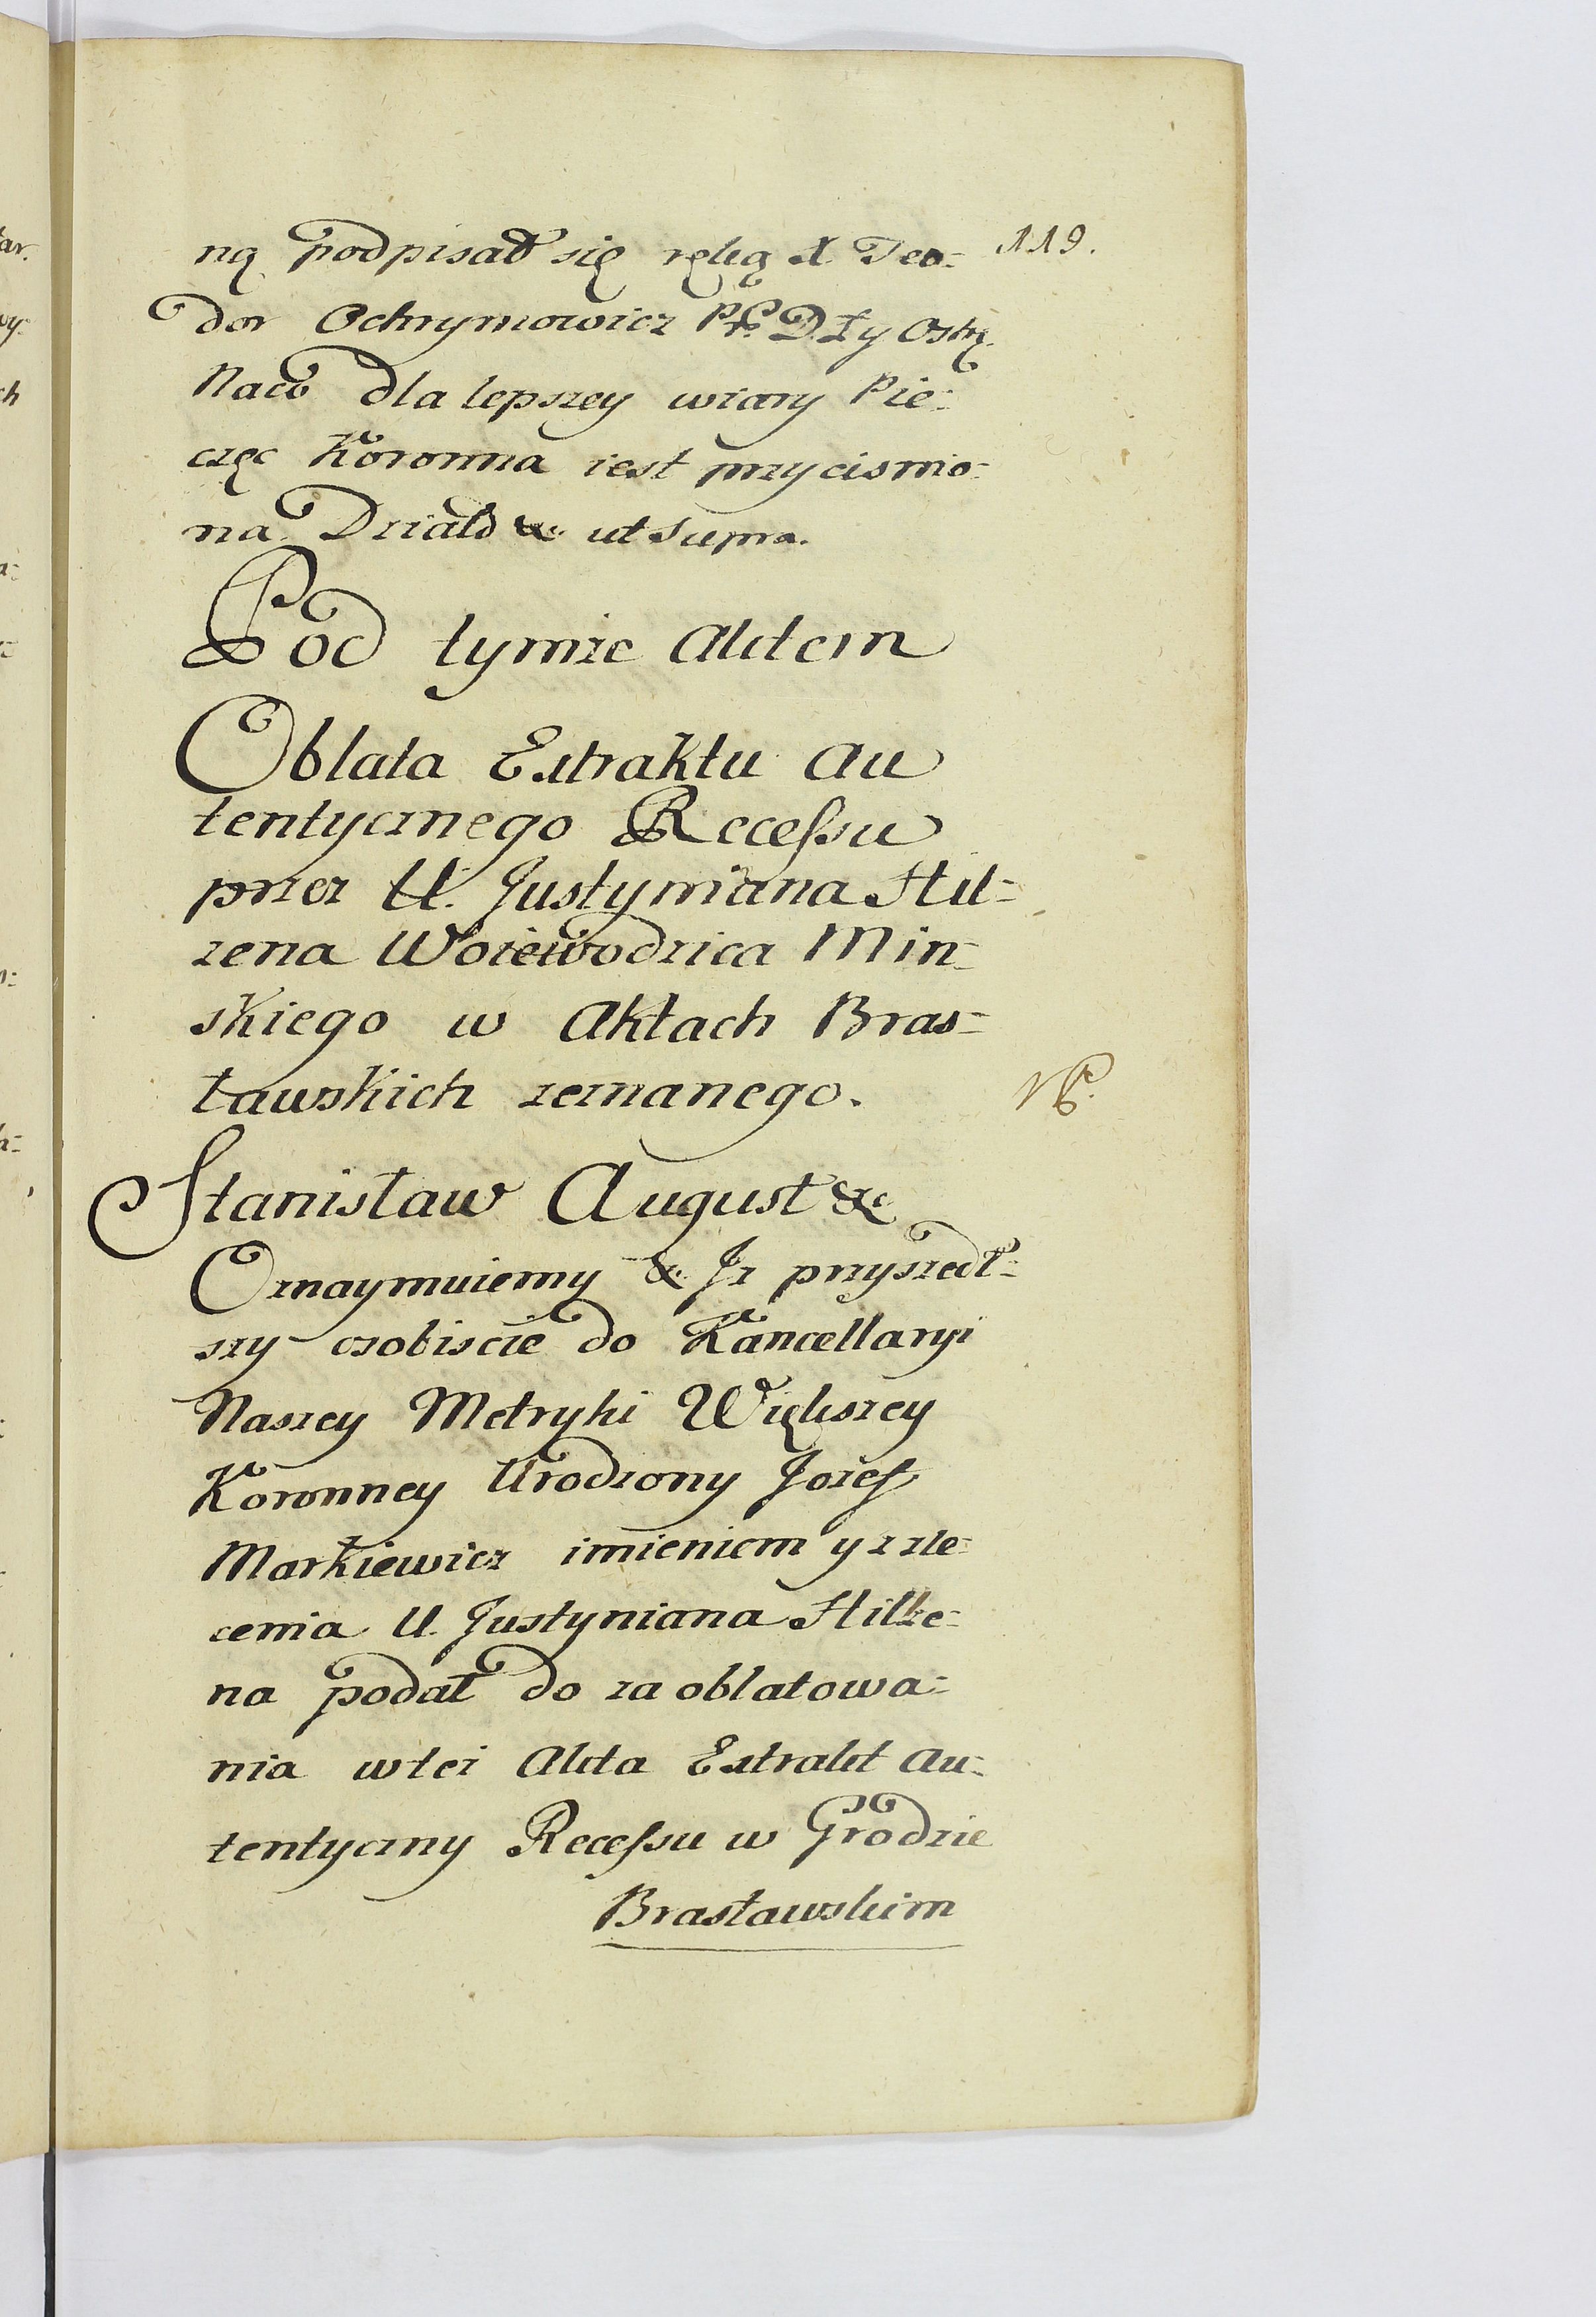 119.
ną podpisał się ręką X Teo=
dor Ochrymowicz D. Ł y Ostr.
Na co dla lepszey wiary Pie=
częc Koronna iest przycisnio=
na. Działo &c: ut Supra.
Pod tymże Aktem
Oblata Extraktu Au
tentycznego Recessu
przez U. Justyniana Hil=
zena Woiewodzica Min=
skiego w Aktach Bras=
ławskich zeznanego.
Stanisław August &c
Oznaymuiemy &c. Iż przyszedł=
szy osobiscie do Kancellaryi
Naszey Metryki Większey
Koronney Urodzony Jozef
Markiewicz imieniem y z zle=
cenia U. Justyniana Hilze=
na podał do za oblatowa=
nia w tei Akta Extrakt Au=
tentyczny Recessu w Grodzie
Brasławskim